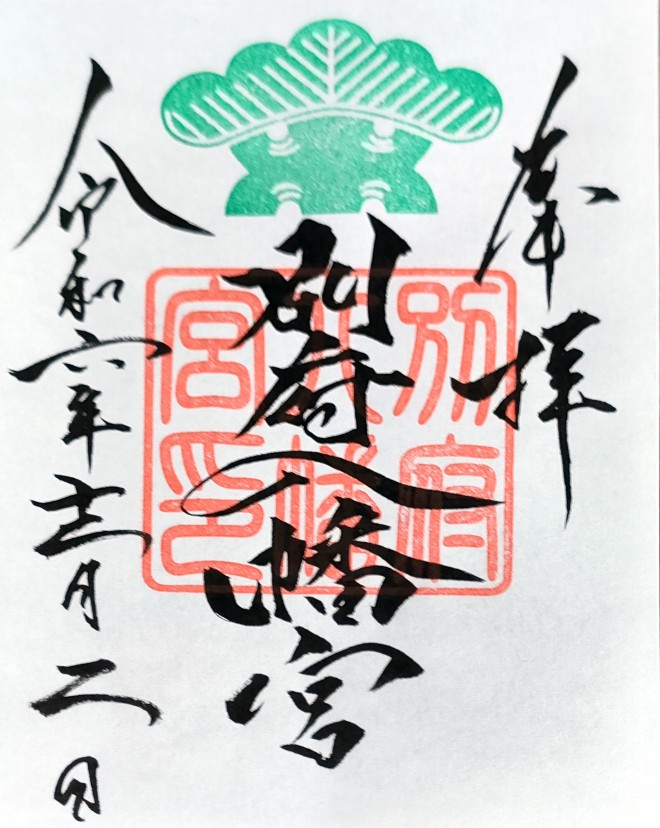 奉拝
別府八幡宮
令和六年十二月二日
別府
八幡
宮印